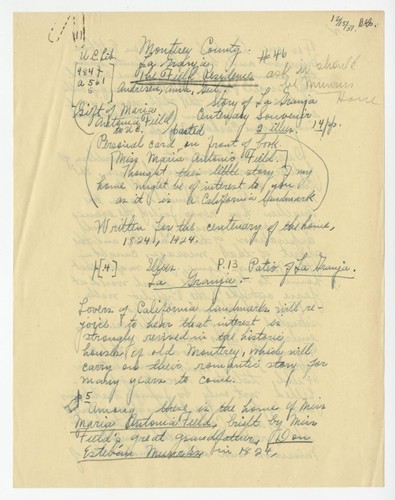 12/15/37. B.H.
U.C. Lib. Montrey County. #46
La Granja
The Field Residence. ask if should
be Munras
Home
484 f
a 501
Andersen, Anna, Geil,
Story of La Granja
Gift of Maria
Antonia Field
to U.C.
Centenary Souvenir
pasted 2 illus. 14 pp.
Personal card on front of book
[Miss Maria Antonia Field.]
Thought this little story of my
home might be of interest to you
as it is a California landmark
Written for the centenary of the home,
1824, 1924.
p[4.] Illus. P.13 Patio of La Granja.
La Granja:-
Lovers of California landmarks will re-
joice to hear that interest is
strongly revived in the historic
houses of old Montrey, which will
carry on their romantic story for
many years to come.
p5
Among these is the home of Miss
Maria Antonia Field, built by Miss
Field's great grandfather, Don
Estebán Munras in 1824,